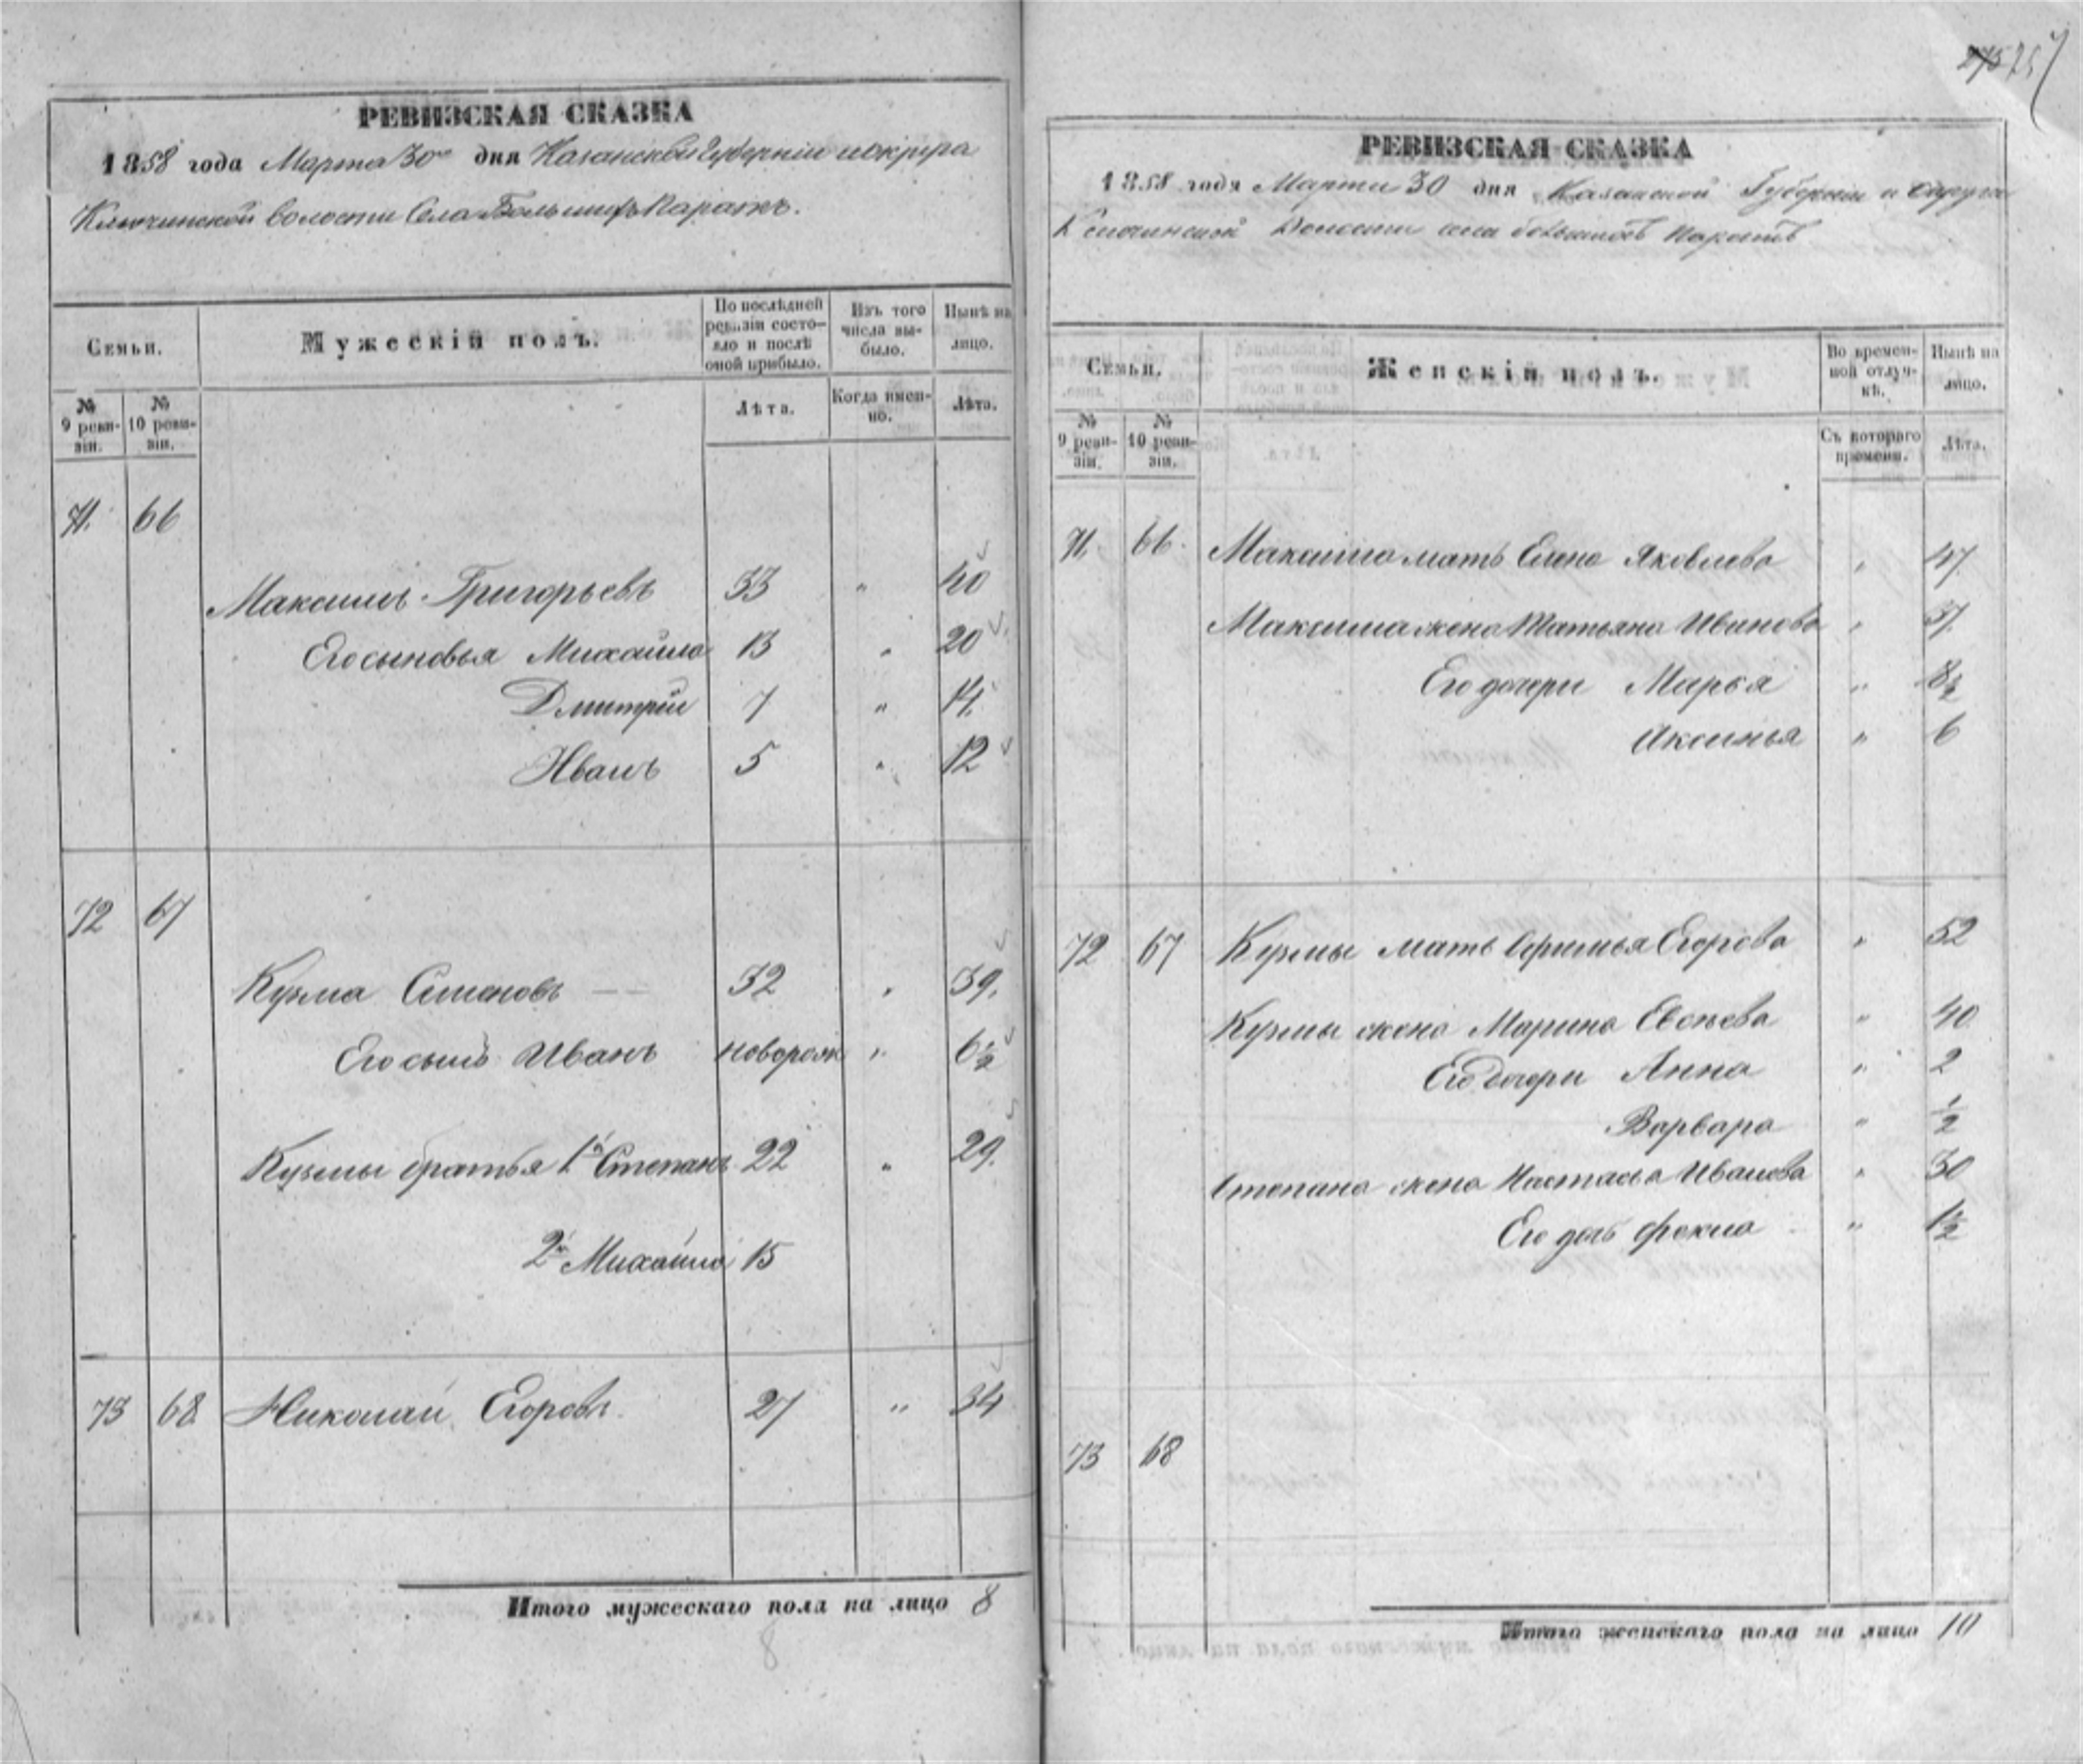 275 257
РЕВИЗСКАЯ СКАЗКА
1858 года Марта 30го дня Казанской Губерніи и округа
Ключинской волости Села Большихъ Каратъ.
Семьи.
Мужескій полъ.
По послѣдней ревизіи состояло и послѣ оной прибыло.
Изъ того числа выбыло.
Нынѣ на лицо.
№ 9 ревизіи.
№ 10 ревизіи.
Лѣта.
Когда именно.
Лѣта.
71. 66
Максимъ Григорьевъ 33 " 40
Его сыновья Михайло 13 " 20
Дмитрій 7 " 14.
Иванъ 5 " 12
72 67
Кузма Семеновъ — — 32 " 39.
Его сынъ Иванъ новорож " 6½
Кузмы братья 1й Степанъ 22 " 29.
2й Михайло 15
73 68 Николай Егоровъ 27 " 34
Итого мужескаго пола на лицо 8
8
РЕВИЗСКАЯ СКАЗКА
1858 года Марта 30 дня Казанской Губерніи и Округа
Ключинской Волости села большихъ Каратъ
Семьи.
Женскій полъ.
Во временной отлучкѣ.
Нынѣ на лицо.
№ 9 ревизіи.
№ 10 ревизіи.
Съ котораго времени.
Лѣта.
71. 66. Максима мать Елена Яковлева " 47
Максима жена Татьяна Иванова " 37.
Его дочери Марья " 8½
Аксинья " 6
72 67 Кузмы мать Егорова " 52
Кузмы жена Марина " 40
Его дочери Анна " 2
Варвара " ½
Степана жена Настасья Иванова " 30
Его дочь Фекла " 1½
73 68
Итого женскаго пола на лицо 10